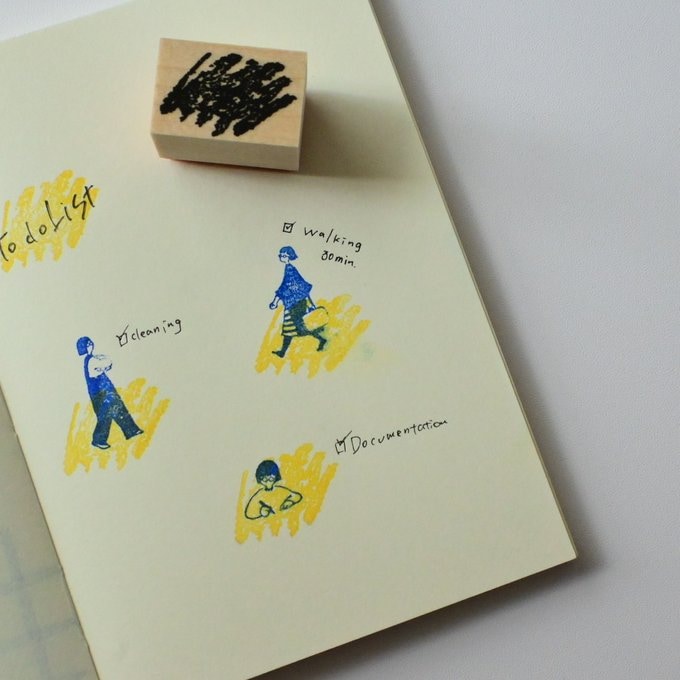 To do List
☑ Walking
30min.
☑ cleaning
☑ Documentation